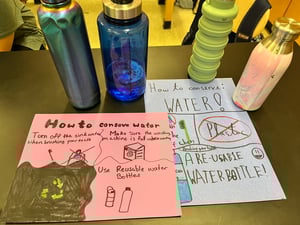 How to conserve water
Turn off the sink water
when brushing your teeth
Make Sure the washing
machine is full
Use Reusable water
Bottles
How to conserve:
WATER!
Plastic
A RE-USABLE
WATER BOTTLE!